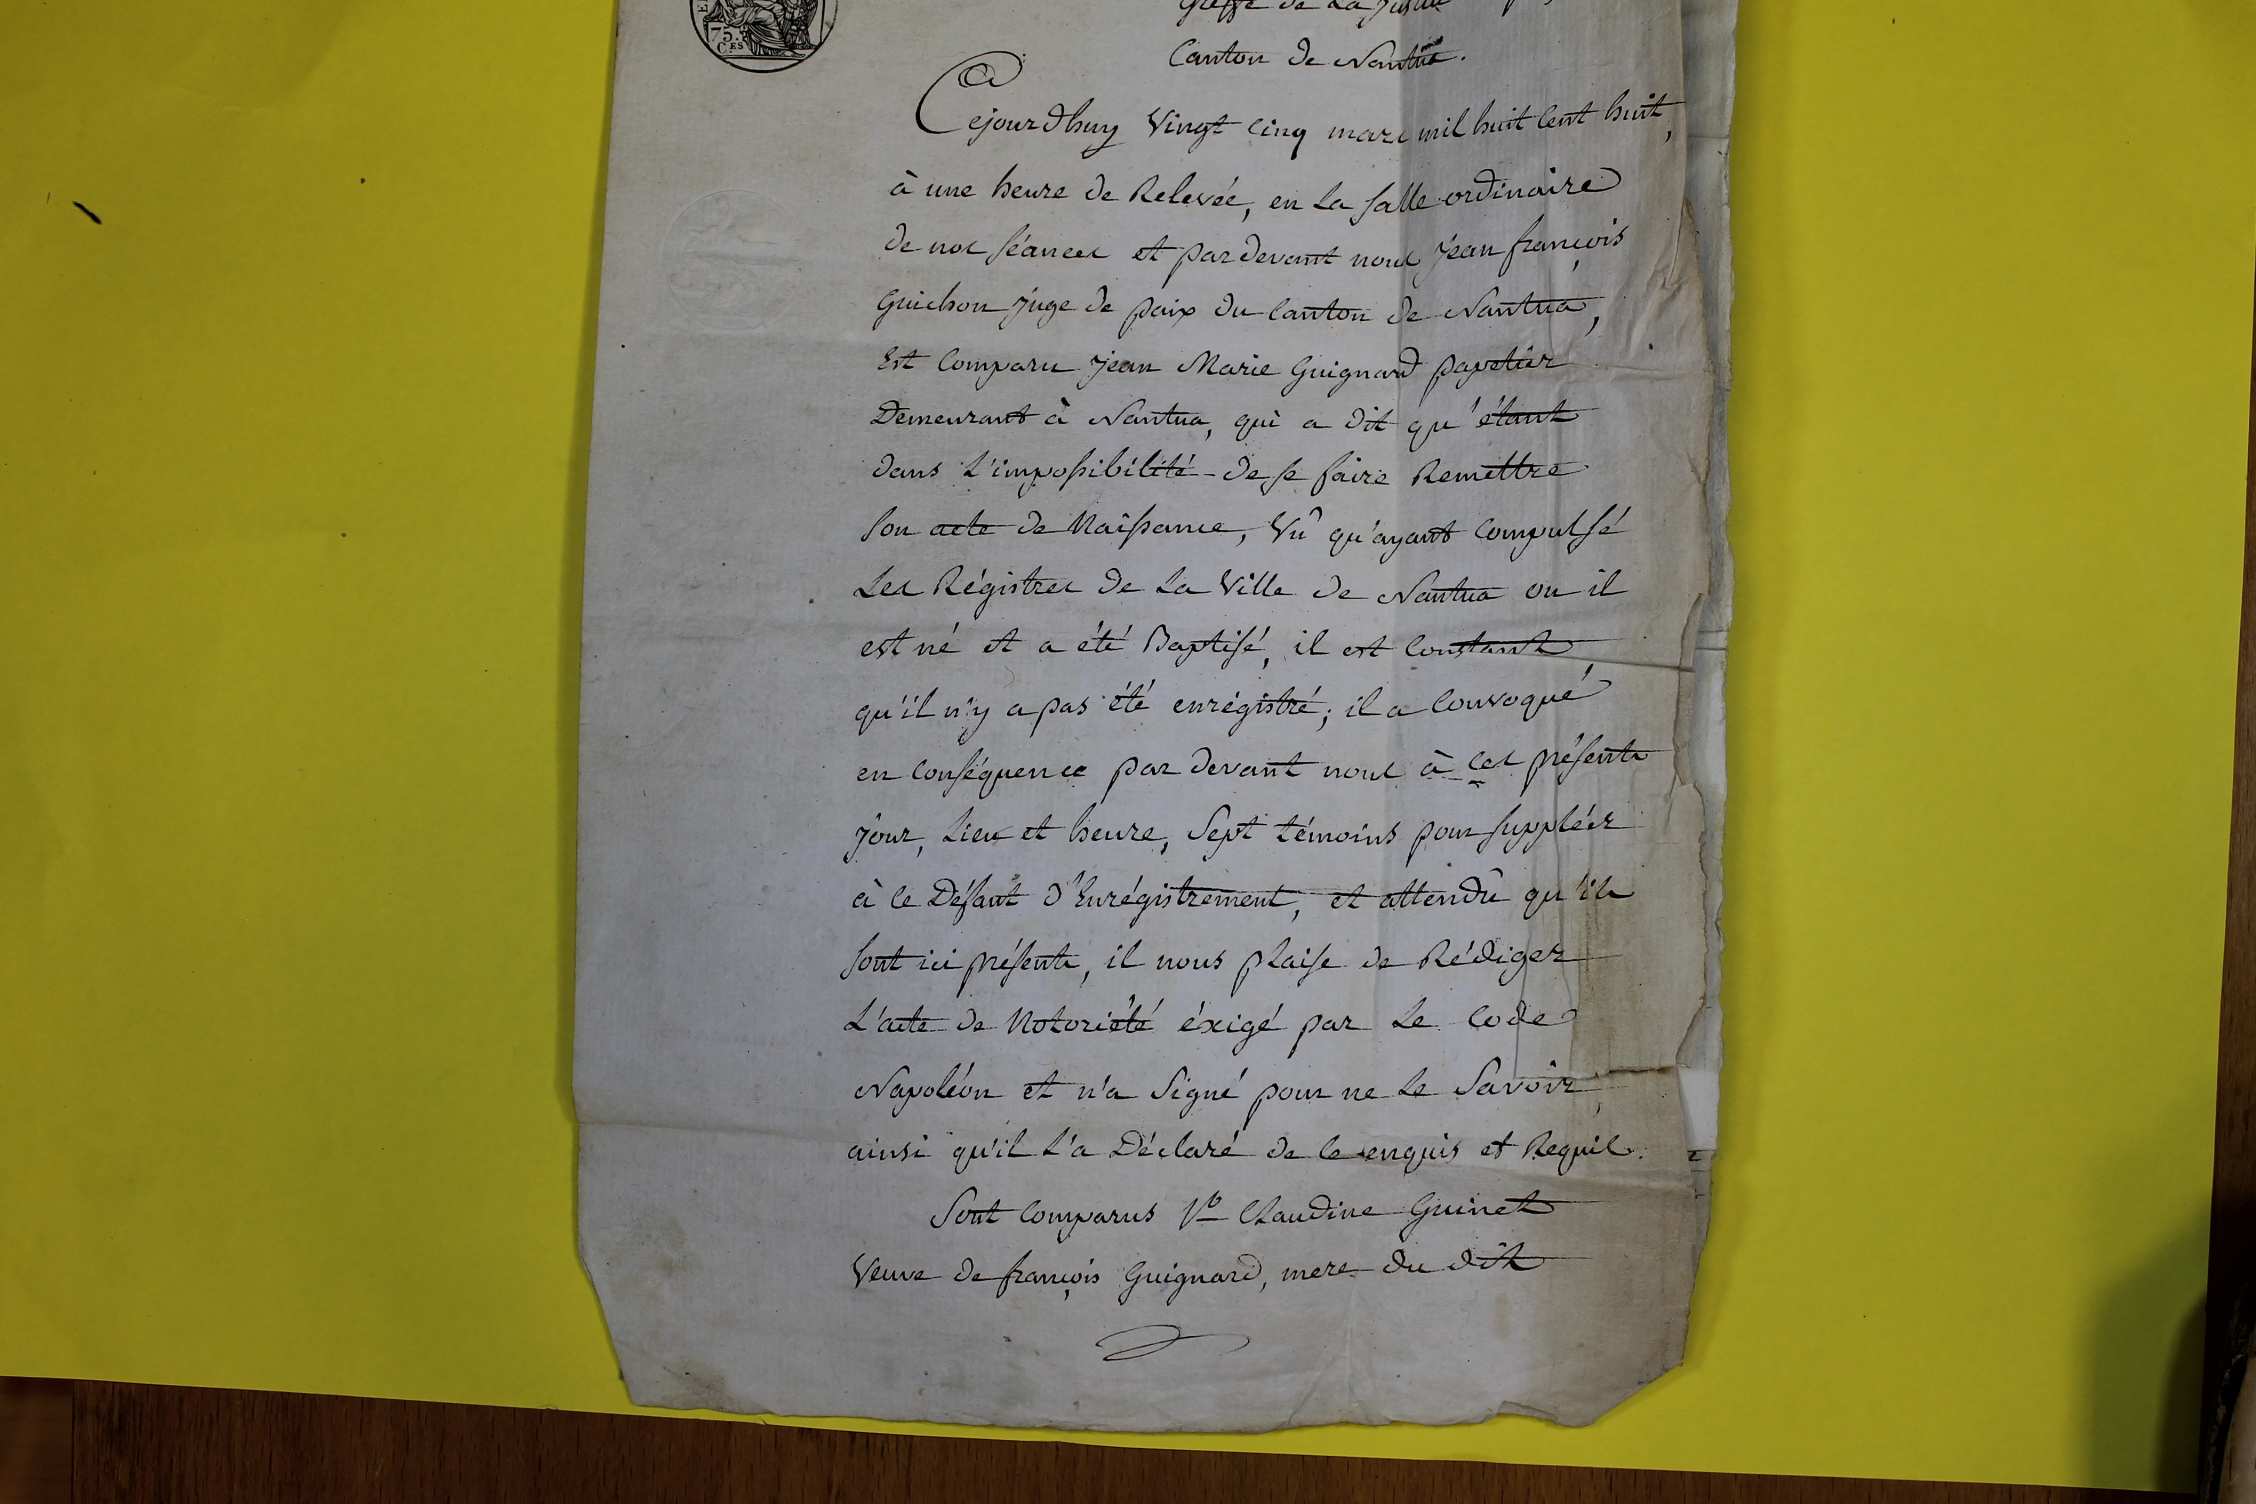 75.
C.ES
Greffe de La Justice
Canton de Nantua.
Cejourdhuy Vingt Cinq mars mil huit Cent huit,
à une heure de Relevée, en La salle ordinaire
de nos séances et pardevant nous jean françois
Guichon juge de paix du Canton de Nantua,
Est Comparu jean Marie Guignard papetier
Demeurant à Nantua, qui a dit qu'étant
dans L'impossibilité de se faire Remettre
son acte de Naissance, Vû qu'ayant Compulsé
Les Régistres de La Ville de Nantua ou il
est né et a été Baptisé, il est Constant,
qu'il n'y a pas été enrégistré; il a Convoqué
en Conséquence par devant nous à Ces présents
jour, Lieu et heure, Sept témoins pour suppléer
à Ce Défaut d'Enrégistrement, et attendû qu'ils
sont ici présents, il nous plaise de Rédiger
L'acte de Notoriété éxigé par Le Code
Napoléon et n'a Signé pour ne Le Savoir,
ainsi qu'il L'a Déclaré de Ce enquis et Requis.
Sont Comparus 1º Claudine Guinet
Veuve de françois Guignard, mere du dit